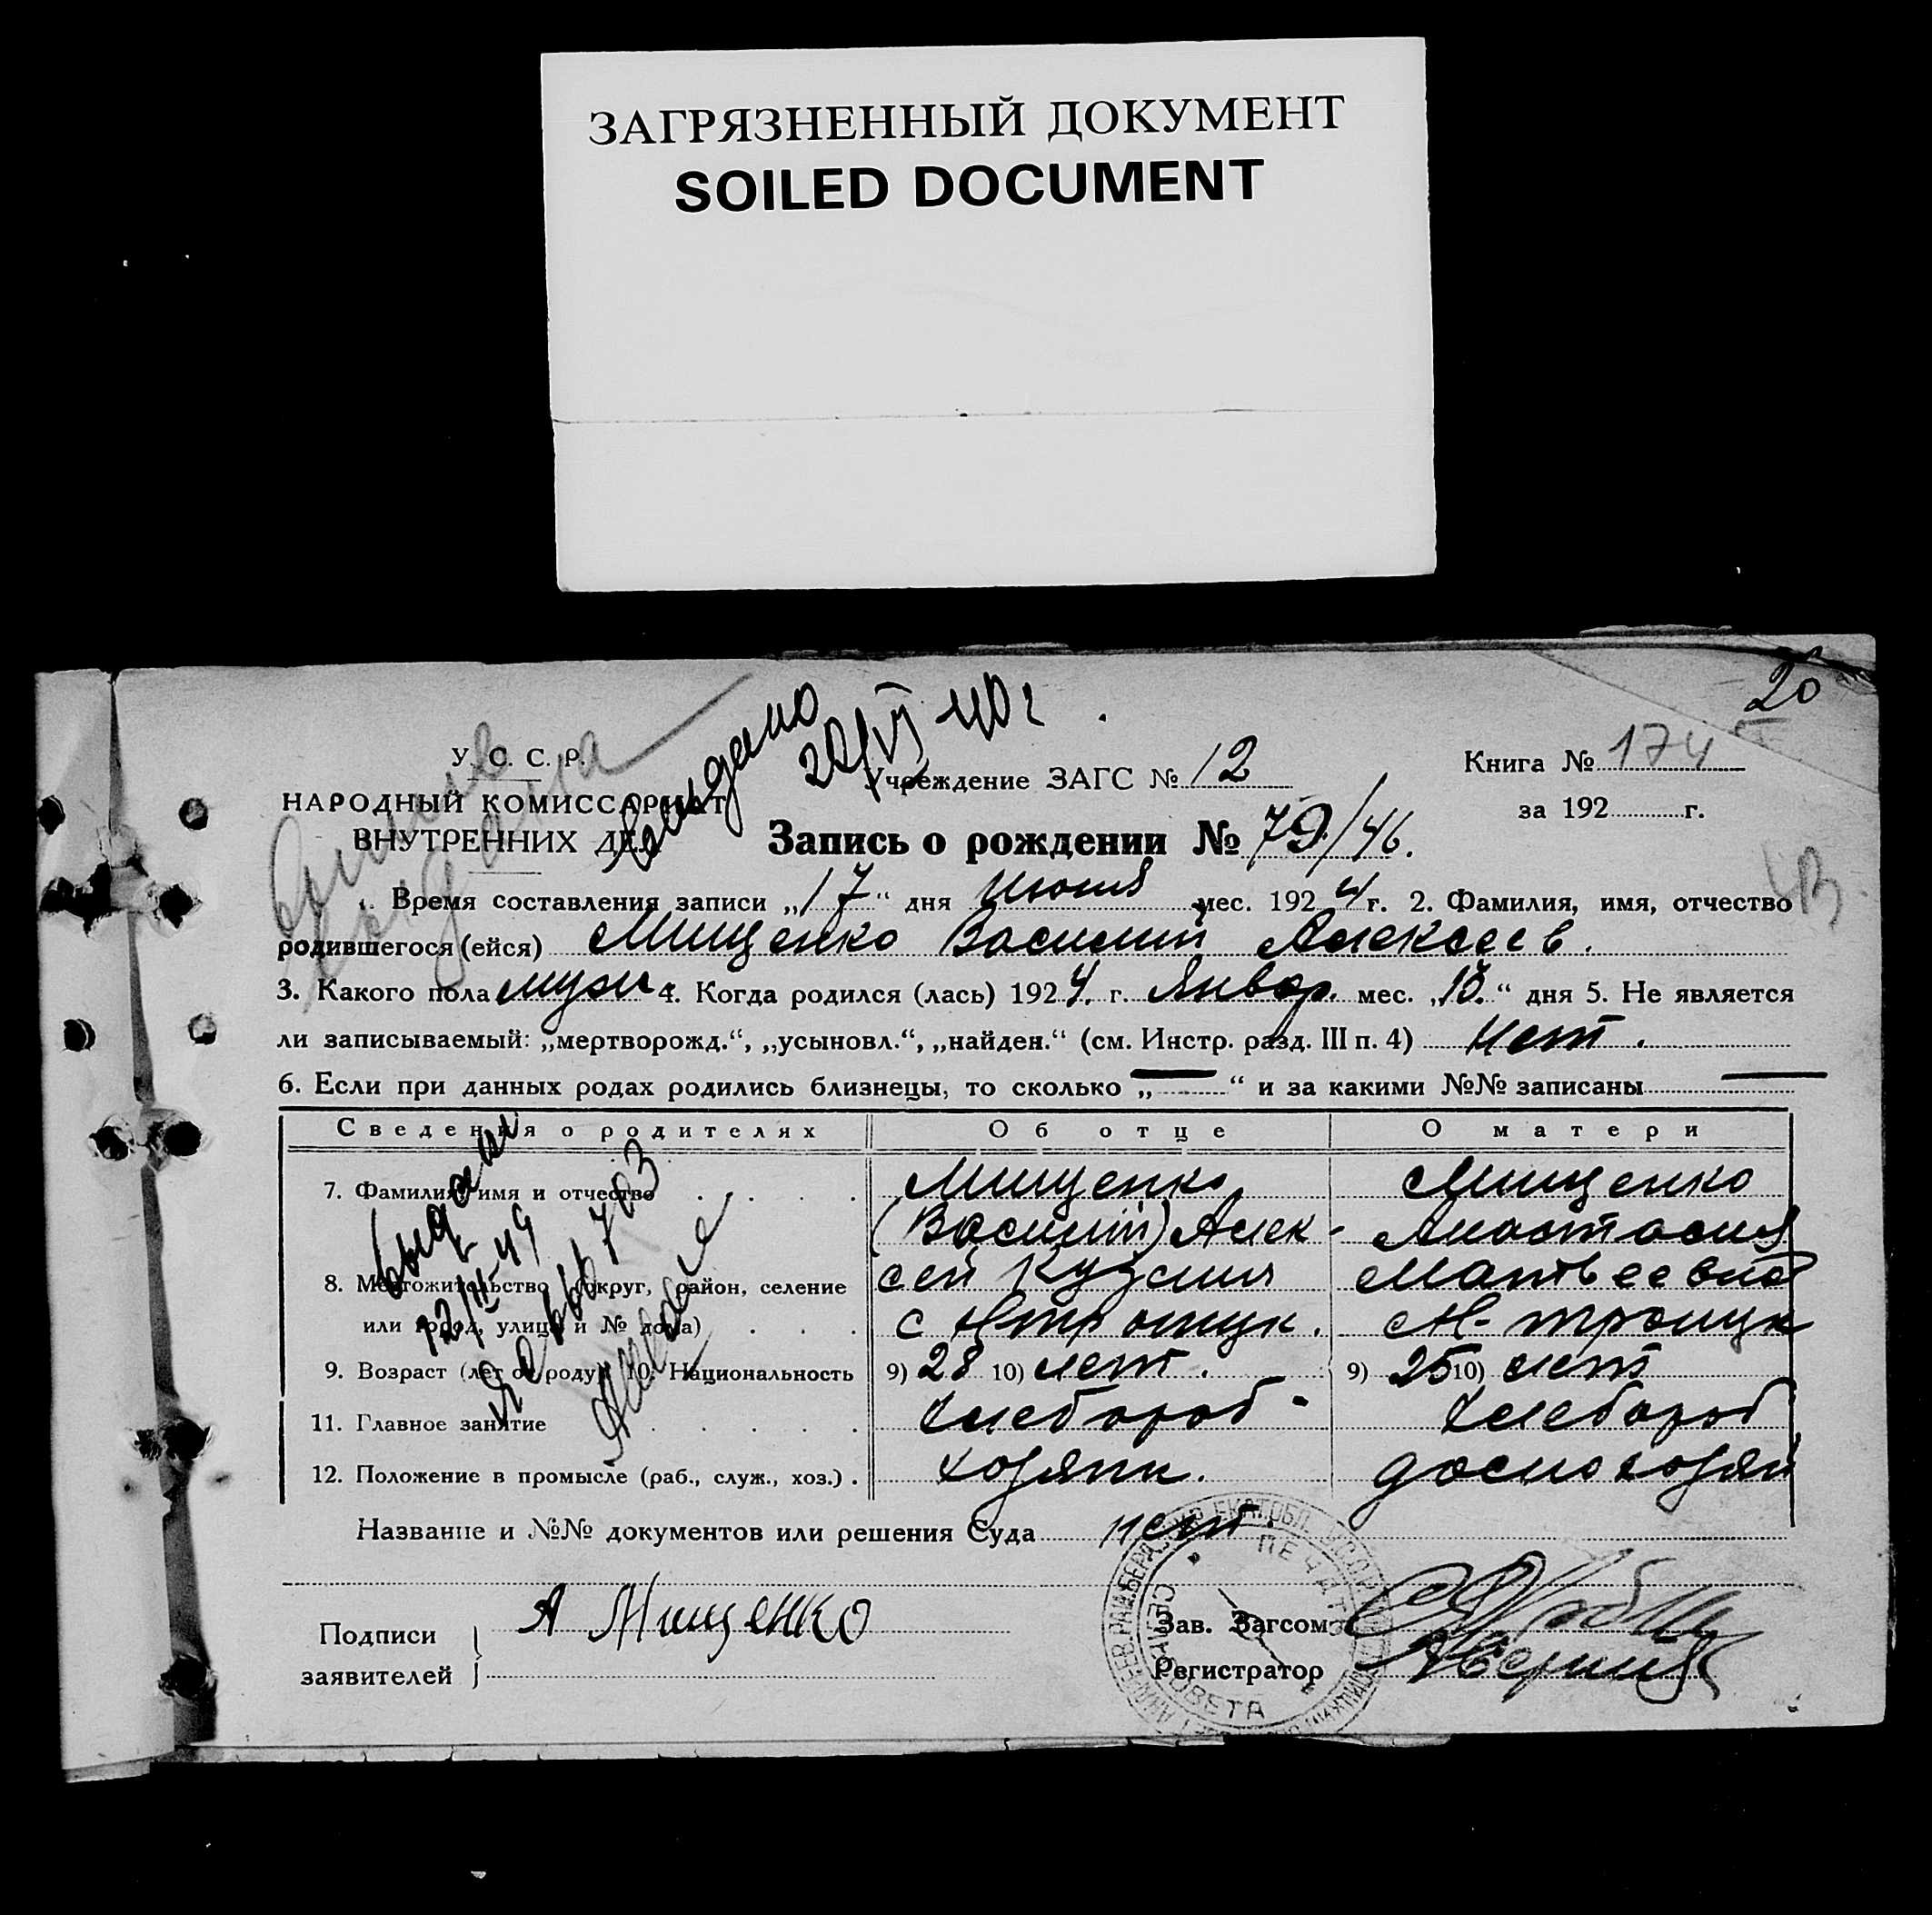 ЗАГРЯЗНЕННЫЙ ДОКУМЕНТ
SOILED DOCUMENT
20
У. С. С. Р.
НАРОДНЫЙ КОМИССАРИАТ
ВНУТРЕННИХ ДЕЛ
выдано
20/VI 40 г
Учреждение ЗАГС № 12
Книга № 174
за 192 г.
Запись о рождении № 79/46.
1. Время составления записи „17“ дня июня мес. 1924 г. 2. Фамилия, имя, отчество
родившегося (ейся) Мищенко Василий Алексеев.
3. Какого пола муж. 4. Когда родился (лась) 1924. г. Январ. мес. „13.“ дня 5. Не является
ли записываемый: „мертворожд.“, „усыновл.“, „найден.“ (см. Инстр. разд. III п. 4) нет.
6. Если при данных родах родились близнецы, то сколько „—“ и за какими №№ записаны —
Сведения о родителях Об отце О матери
7. Фамилия, имя и отчество Мищенко Мищенко
(Василий) Алек- Анастасия
8. Местожительство (округ, район, селение сей Кузмич Матвеевна
или город, улица и № дома) с Нтроицк. Н-троицк
9. Возраст (лет от роду) 10. Национальность 9) 28 10) лет. 9) 25 10) лет
11. Главное занятие хлебороб- хлебороб
12. Положение в промысле (раб., служ., хоз.) хозяин. домохозяй
выдан
Название и №№ документов или решения Суда нет.
Подписи
заявителей
А Мищенко
Зав. Загсом
Регистратор
ПЕЧАТЬ
СЕЛЬСОВЕТА